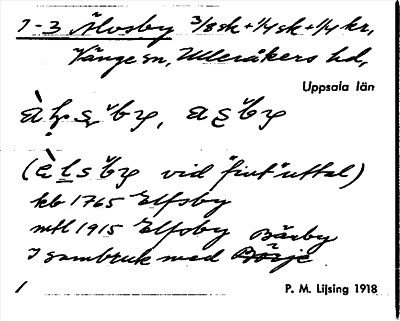 1-3 Älvsby 3/8 sk + 1/4 sk + 1/4 kr,
Vänge sn, Ulleråkers hd,
Uppsala län
vid "fint" uttal)
kb 1765 Elfsby
mtl 1915 Elfsby
I sambruk med Börje Bärby
1
P. M. Lijsing 1918